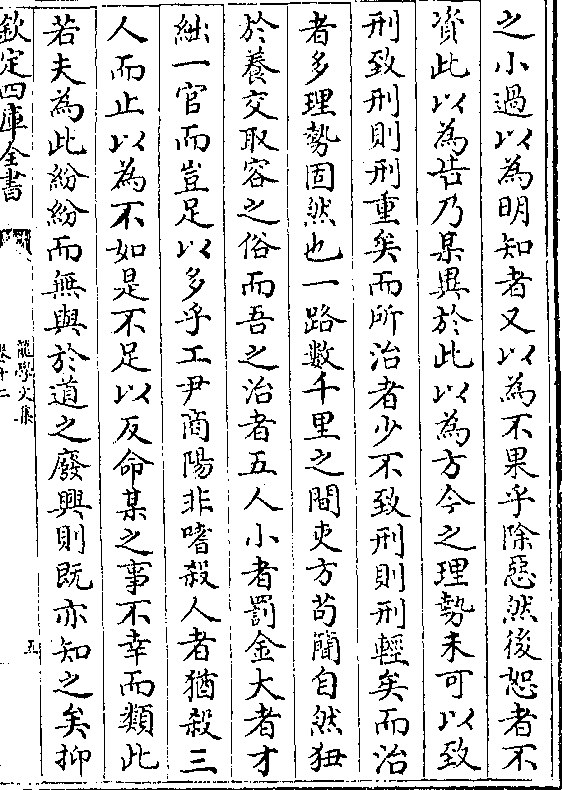 之小過以為明知者又以為不果乎除惡然後恕者不
資此以為告乃某異於此以為方今之理勢未可以致
刑致刑則刑重矣而所治者少不致刑則刑輕矣而治
者多理勢固然也一路數千里之間吏方苟簡自然狃
於養交取容之俗而吾之治者五人小者罰金大者才
絀一官而豈足以多乎工尹商陽非嗜殺人者猶殺三
人而止以為不如是不足以反命某之事不幸而類此
若夫為此紛紛而無與於道之廢興則既亦知之矣抑
欽定四庫全書
龍學文集
卷十二
五